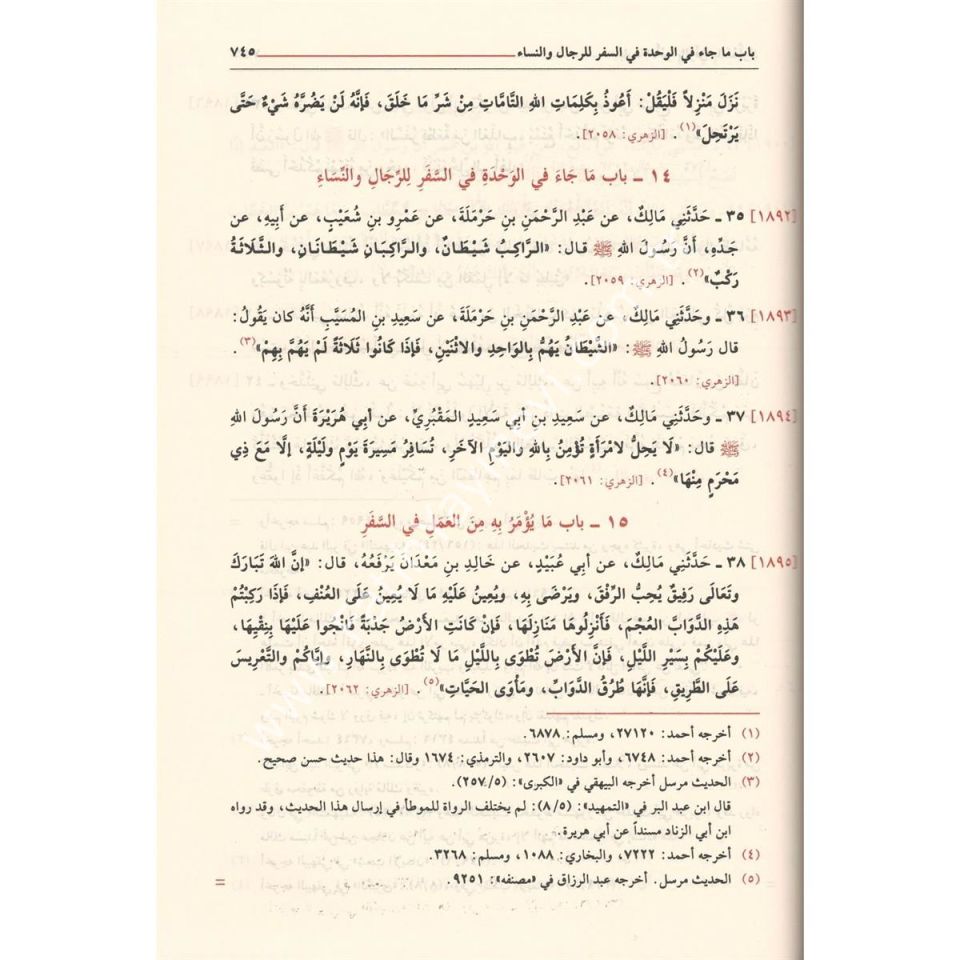 باب ما جاء في الوحدة في السفر للرجال والنساء ٧٤٥
نَزَلَ مَنْزِلاً فَلْيَقُلْ: أَعُوذُ بِكَلِمَاتِ اللهِ التَّامَّاتِ مِنْ شَرِّ مَا خَلَقَ، فَإِنَّهُ لَنْ يَضُرَّهُ شَيْءٌ حَتَّى
يَرْتَحِلَ»(١). [الزهري: ٢٠٥٨].
١٤ ـ باب مَا جَاءَ في الوَحْدَةِ في السَّفَرِ لِلرِّجَالِ والنِّسَاءِ
[١٨٩٢] ٣٥ ـ حَدَّثَنِي مَالِكٌ، عن عَبْدِ الرَّحْمَنِ بنِ حَرْمَلَةَ، عن عَمْرِو بنِ شُعَيْبٍ، عن أَبِيهِ، عن
جَدِّهِ، أَنَّ رَسُولَ اللهِ ﷺ قال: «الرَّاكِبُ شَيْطَانٌ، والرَّاكِبَانِ شَيْطَانَانِ، والثَّلَاثَةُ
رَكْبٌ»(٢). [الزهري: ٢٠٥٩].
[١٨٩٣] ٣٦ ـ وحَدَّثَنِي مَالِكٌ، عن عَبْدِ الرَّحْمَنِ بنِ حَرْمَلَةَ، عن سَعِيدِ بنِ المُسَيَّبِ أَنَّهُ كان يَقُولُ:
قال رَسُولُ اللهِ ﷺ: «الشَّيْطَانُ يَهُمُّ بِالوَاحِدِ والاثْنَيْنِ، فَإِذَا كَانُوا ثَلَاثَةً لَمْ يَهُمَّ بِهِمْ»(٣).
[الزهري: ٢٠٦٠].
[١٨٩٤] ٣٧ ـ وحَدَّثَنِي مَالِكٌ، عن سَعِيدِ بنِ أَبي سَعِيدٍ المَقْبُرِيِّ، عن أَبي هُرَيْرَةَ أَنَّ رَسُولَ اللهِ
ﷺ قال: «لَا يَحِلُّ لامْرَأَةٍ تُؤْمِنُ بِاللهِ واليَوْمِ الآخَرِ، تُسَافِرُ مَسِيرَةَ يَوْمٍ ولَيْلَةٍ، إلَّا مَعَ ذِي
مَحْرَمٍ مِنْهَا»(٤). [الزهري: ٢٠٦١].
١٥ ـ باب مَا يُؤْمَرُ بِهِ مِنَ العَمَلِ في السَّفَرِ
[١٨٩٥] ٣٨ ـ حَدَّثَنِي مَالِكٌ، عن أَبي عُبَيْدٍ، عن خَالِدِ بنِ مَعْدَانَ يَرْفَعُهُ، قال: «إنَّ اللهَ تَبَارَكَ
وتَعَالَى رَفِيقٌ يُحِبُّ الرِّفْقَ، ويَرْضَى بِهِ، ويُعِينُ عَلَيْهِ مَا لَا يُعِينُ عَلَى العُنْفِ، فَإِذَا رَكِبْتُمْ
هَذِهِ الدَّوَابَّ العُجْمَ، فَأَنْزِلُوهَا مَنَازِلَهَا، فَإِنْ كَانَتِ الأَرْضُ جَدْبَةً فَانْجُوا عَلَيْهَا بِنِقْيِهَا،
وعَلَيْكُمْ بِسَيْرِ اللَّيْلِ، فَإِنَّ الأَرْضَ تُطْوَى بِاللَّيْلِ مَا لَا تُطْوَى بِالنَّهَارِ، وإِيَّاكُمْ والتَّعْرِيسَ
عَلَى الطَّرِيقِ، فَإِنَّهَا طُرُقُ الدَّوَابِّ، ومَأْوَى الحَيَّاتِ»(٥). [الزهري: ٢٠٦٢].
(١) أخرجه أحمد: ٢٧١٢٠، ومسلم: ٦٨٧٨.
(٢) أخرجه أحمد: ٦٧٤٨، وأبو داود: ٢٦٠٧، والترمذي: ١٦٧٤ وقال: هذا حديث حسن صحيح.
(٣) الحديث مرسل أخرجه البيهقي في «الكبرى»: (٢٥٧/٥).
قال ابن عبد البر في «التمهيد»: (٨/٥): لم يختلف الرواة للموطأ في إرسال هذا الحديث، وقد رواه
ابن أبي الزناد مسنداً عن أبي هريرة.
(٤) أخرجه أحمد: ٧٢٢٢، والبخاري: ١٠٨٨، ومسلم: ٣٢٦٨.
(٥) الحديث مرسل. أخرجه عبد الرزاق في «مصنفه»: ٩٢٥١. =